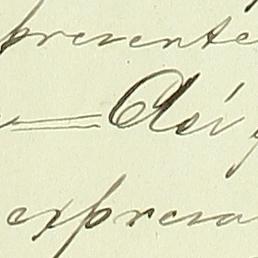 presente
= Así
expresa